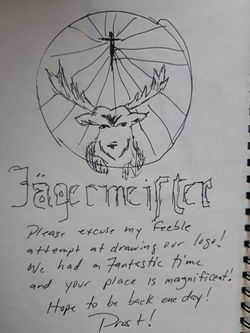 Jägermeifter
Please excuse my feeble
attempt at drawing our logo!
We had a fantastic time
and your place is magnificent!
Hope to be back one day!
Prost!